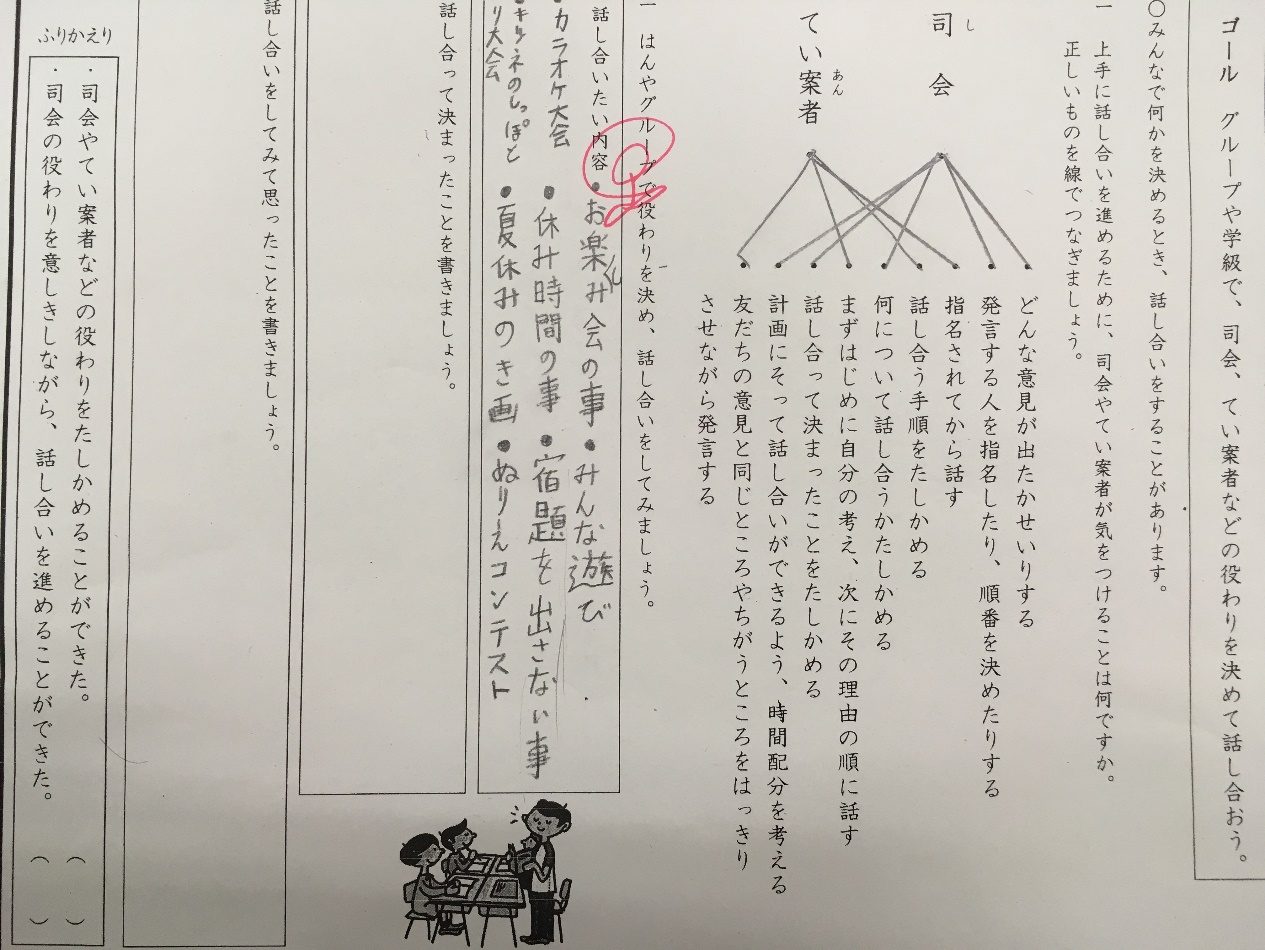 ゴール グループや学級で、司会、てい案者などの役わりを決めて話し合おう。
○みんなで何かを決めるとき、話し合いをすることがあります。
一 上手に話し合いを進めるために、司会やてい案者が気をつけることは何ですか。
正しいものを線でつなぎましょう。
司会
し
てい案者
あん
どんな意見が出たかせいりする
発言する人を指名したり、順番を決めたりする
指名されてから話す
話し合う手順をたしかめる
何について話し合うかたしかめる
まずはじめに自分の考え、次にその理由の順に話す
話し合って決まったことをたしかめる
計画にそって話し合いができるよう、時間配分を考える
友だちの意見と同じところやちがうところをはっきり
させながら発言する
一 はんやグループで役わりを決め、話し合いをしてみましょう。
話し合いたい内容
・お楽しみ会の事・みんな遊び
・カラオケ大会・休み時間の事・宿題を出さない事
・キツネのしっぽと
り大会
・夏休みのき画・ぬりえコンテスト
話し合って決まったことを書きましょう。
話し合いをしてみて思ったことを書きましょう。
ふりかえり
・司会やてい案者などの役わりをたしかめることができた。( )
・司会の役わりを意しきしながら、話し合いを進めることができた。( )